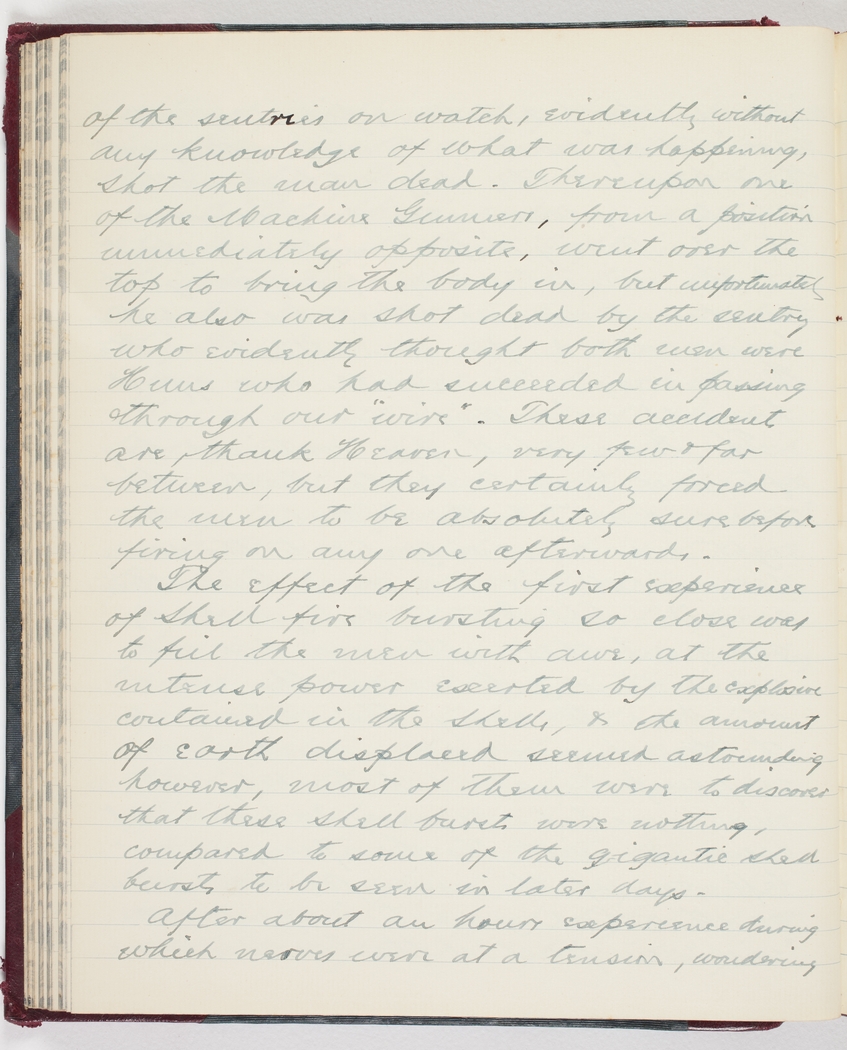 of the sentries on watch, evidently without
any knowledge of what was happening,
shot the man dead. Thereupon one
of the Machine Gunners, from a position
immediately opposite, went over the
top to bring the body in, but unfortunately
he also was shot dead by the sentry
who evidently thought both men were
Huns who had succeeded in passing
through our "wire". These accident
are, thank Heaven, very few & far
between, but they certainly forced
the men to be absolutely sure before
firing on any one afterwards.
The effect of the first experience
of shell fire bursting so close was
to fill the men with awe, at the
intense power exerted by the explosive
contained in the shells, & the amount
of earth displaced seemed astounding
however, most of them were to discover
that these shell bursts were nothing,
compared to some of the gigantic shell
bursts to be seen in later days.
After about an hours experience during
which nerves were at a tension, wondering